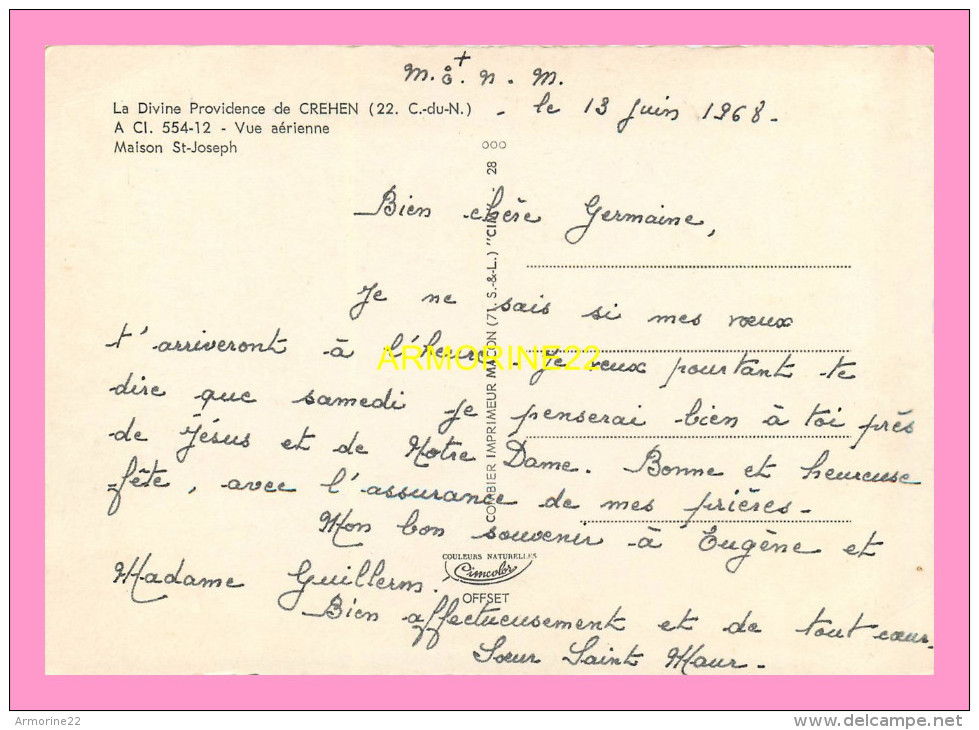 M. + N. M.
La Divine Providence de CREHEN (22. C.-du-N.)
A CI. 554-12 - Vue aérienne
Maison St-Joseph
- le 13 Juin 1968 -
Bien chère Germaine,
Je ne sais si mes vœux
t'arriveront à l'heure. Je veux pourtant te
dire que samedi je penserai bien à toi près
de Jésus et de Notre Dame. Bonne et heureuse
fête, avec l'assurance de mes prières -
Mon bon souvenir à Eugène et
Madame Guillerm.
Bien affectueusement et de tout cœur.
Sœur Saint Maur -
COMBIER IMPRIMEUR MACON (71. S.-&-L.) "CIM" - 28 000
COULEURS NATURELLES
Cimcolor
OFFSET
ARMORINE22
Armorine22
www.delcampe.net